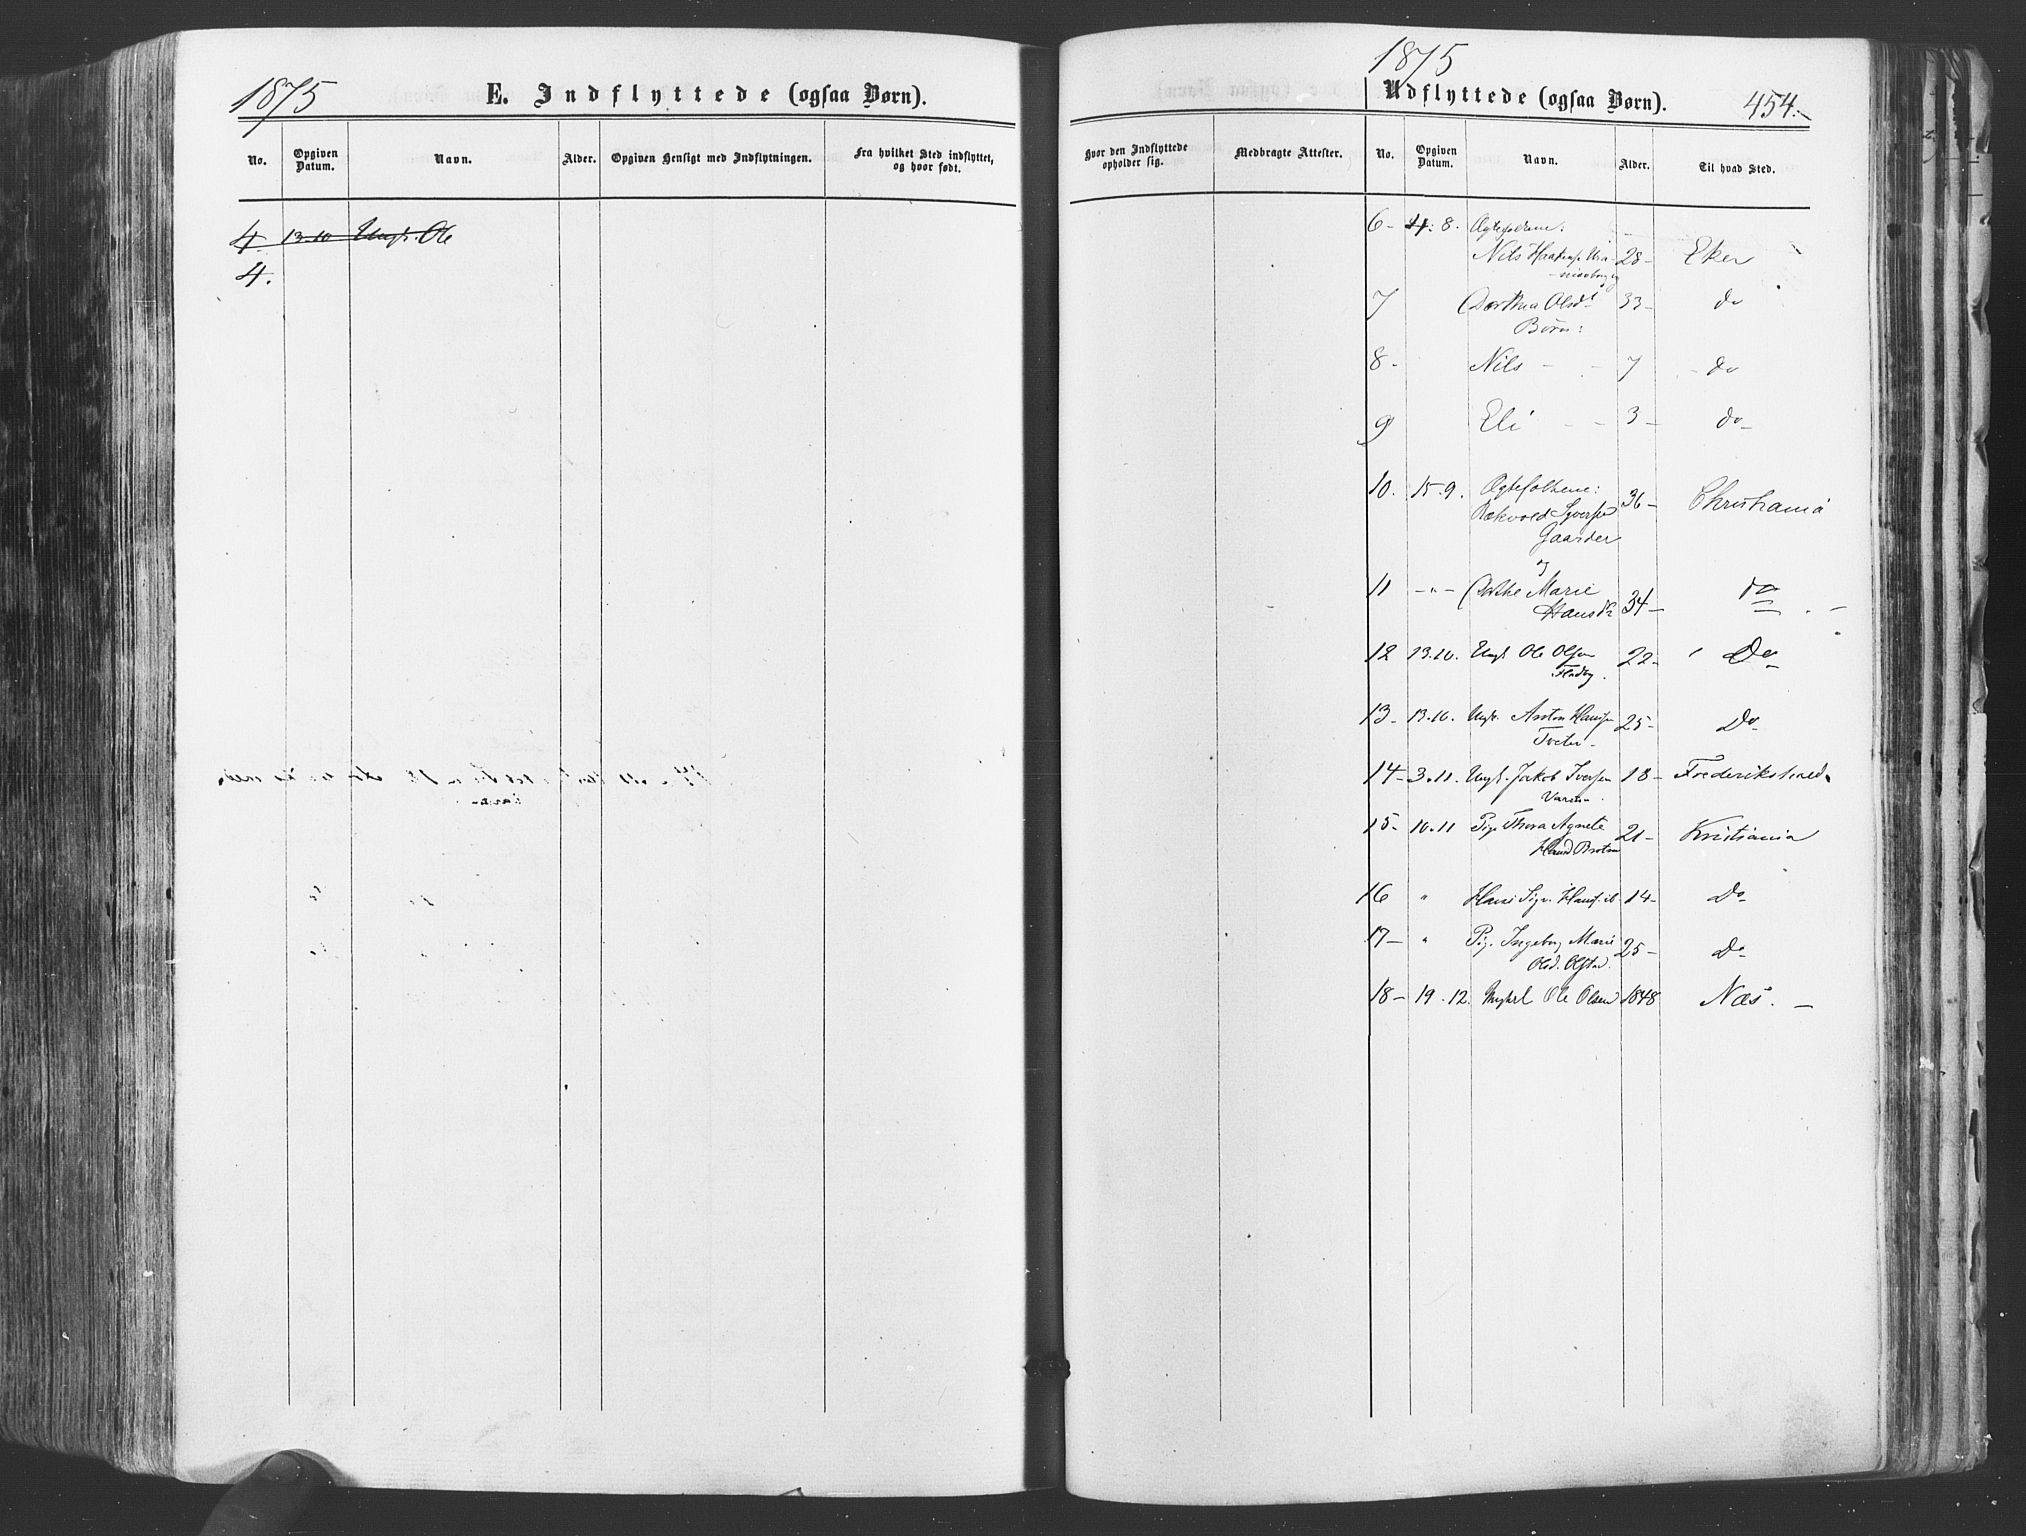 1875
E. Indflyttede (ogsaa Børn).
No.
Opgiven Datum.
Navn.
Alder.
Opgiven Hensigt med Indflytningen.
Fra hvilket Sted indflyttet, og hvor født.
4. 13-10 Ungk. Ole
4.
1875
Udflyttede (ogsaa Børn).
454.
Hvor den Indflyttede opholder sig.
Medbragte Attester.
No.
Opgiven Datum.
Navn.
Alder.
Til hvad Sted.
6- 4: 8.
Nils 28- Eker
7 Dorthea Olsdt 33- do
Børn:
8- Nils - - 7 - do
9 Eli - - 3- do-
10. 15.9. Ægtefolkene:
36- Christiania
Gaarder
og
11 -"- Dorthe Marie
Hansdt 34- do
12 13.10. Ungk. Ole Olsen 22- Do
13- 13.10. Ungk. Anton Hansen 25- Do
Tveter-
14- 3.11. Ungk. Jakob Iversen 18- Frederikshald.
15- 10.11 Pige Thora Agnete 21- Kristiania
Hansd Braten
16 " 14- Do
17- " Pig. Ingeborg Marie 25- Do
Olsd. Olstad.
18- 19.12. Ungkrl Ole Olsen 1848 Næs. -